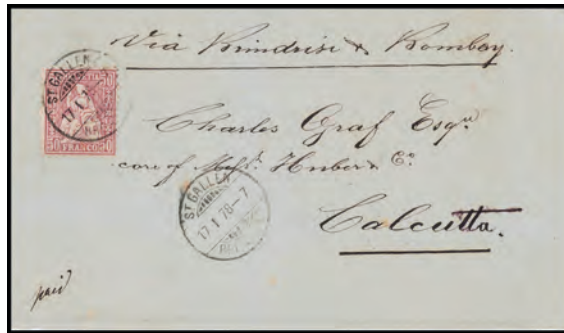 Via Brindisi & Bombay.
ST. GALLEN
17 I
FRANCO
Charles Graf Esqr
care of Messrs. Huber & Co.
ST. GALLEN
17 I 78-7
Calcutta.
paid